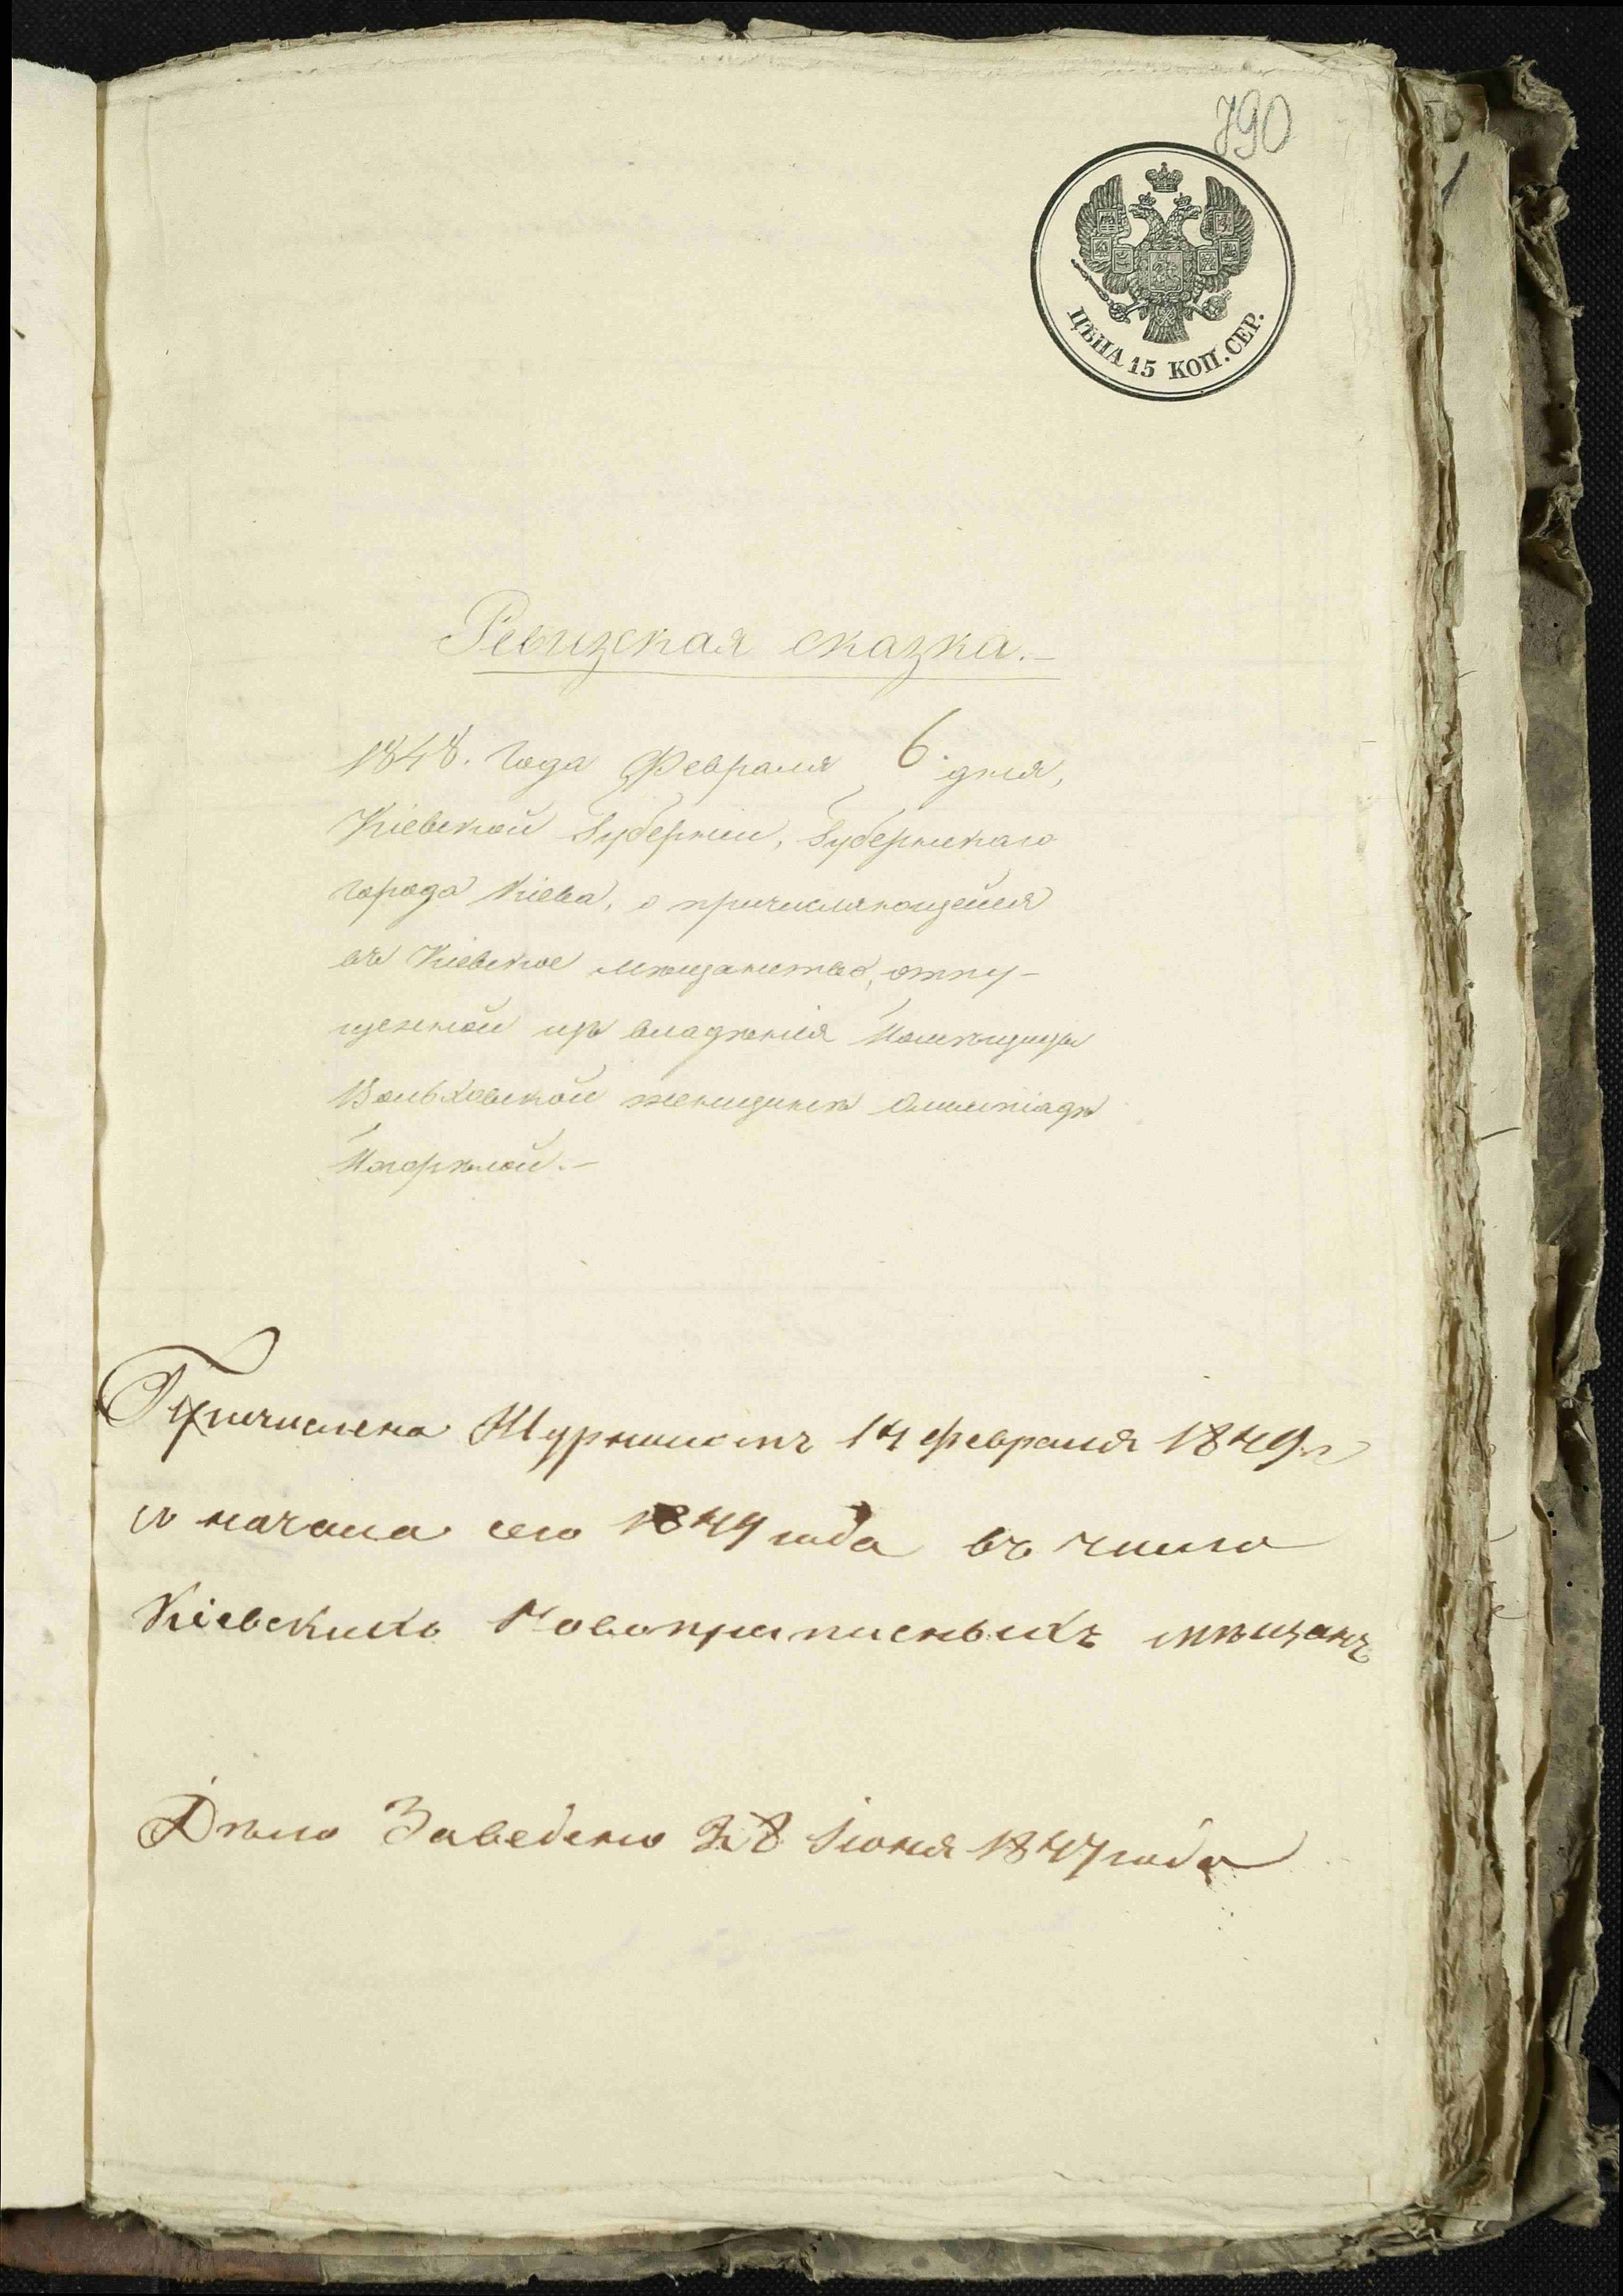 790
ЦѢНА 15 КОП. СЕР.
Ревизская сказка.-
1848. Года Февраля 6. дня,
Кіевской Губерніи, Губернскаго
города Кіева, о причисляющейся
въ Кіевское мѣщанство, отпу-
щенной изъ владѣнія Помѣщицы
Вольховской женщинѣ Олимпіадѣ
Причислена Журналомъ 14 февраля 1849 г
съ начала сего 1849 года въ число
Кіевскихъ Новоприписныхъ мѣщанъ
Дѣло Заведено 28 Іюня 1847 года